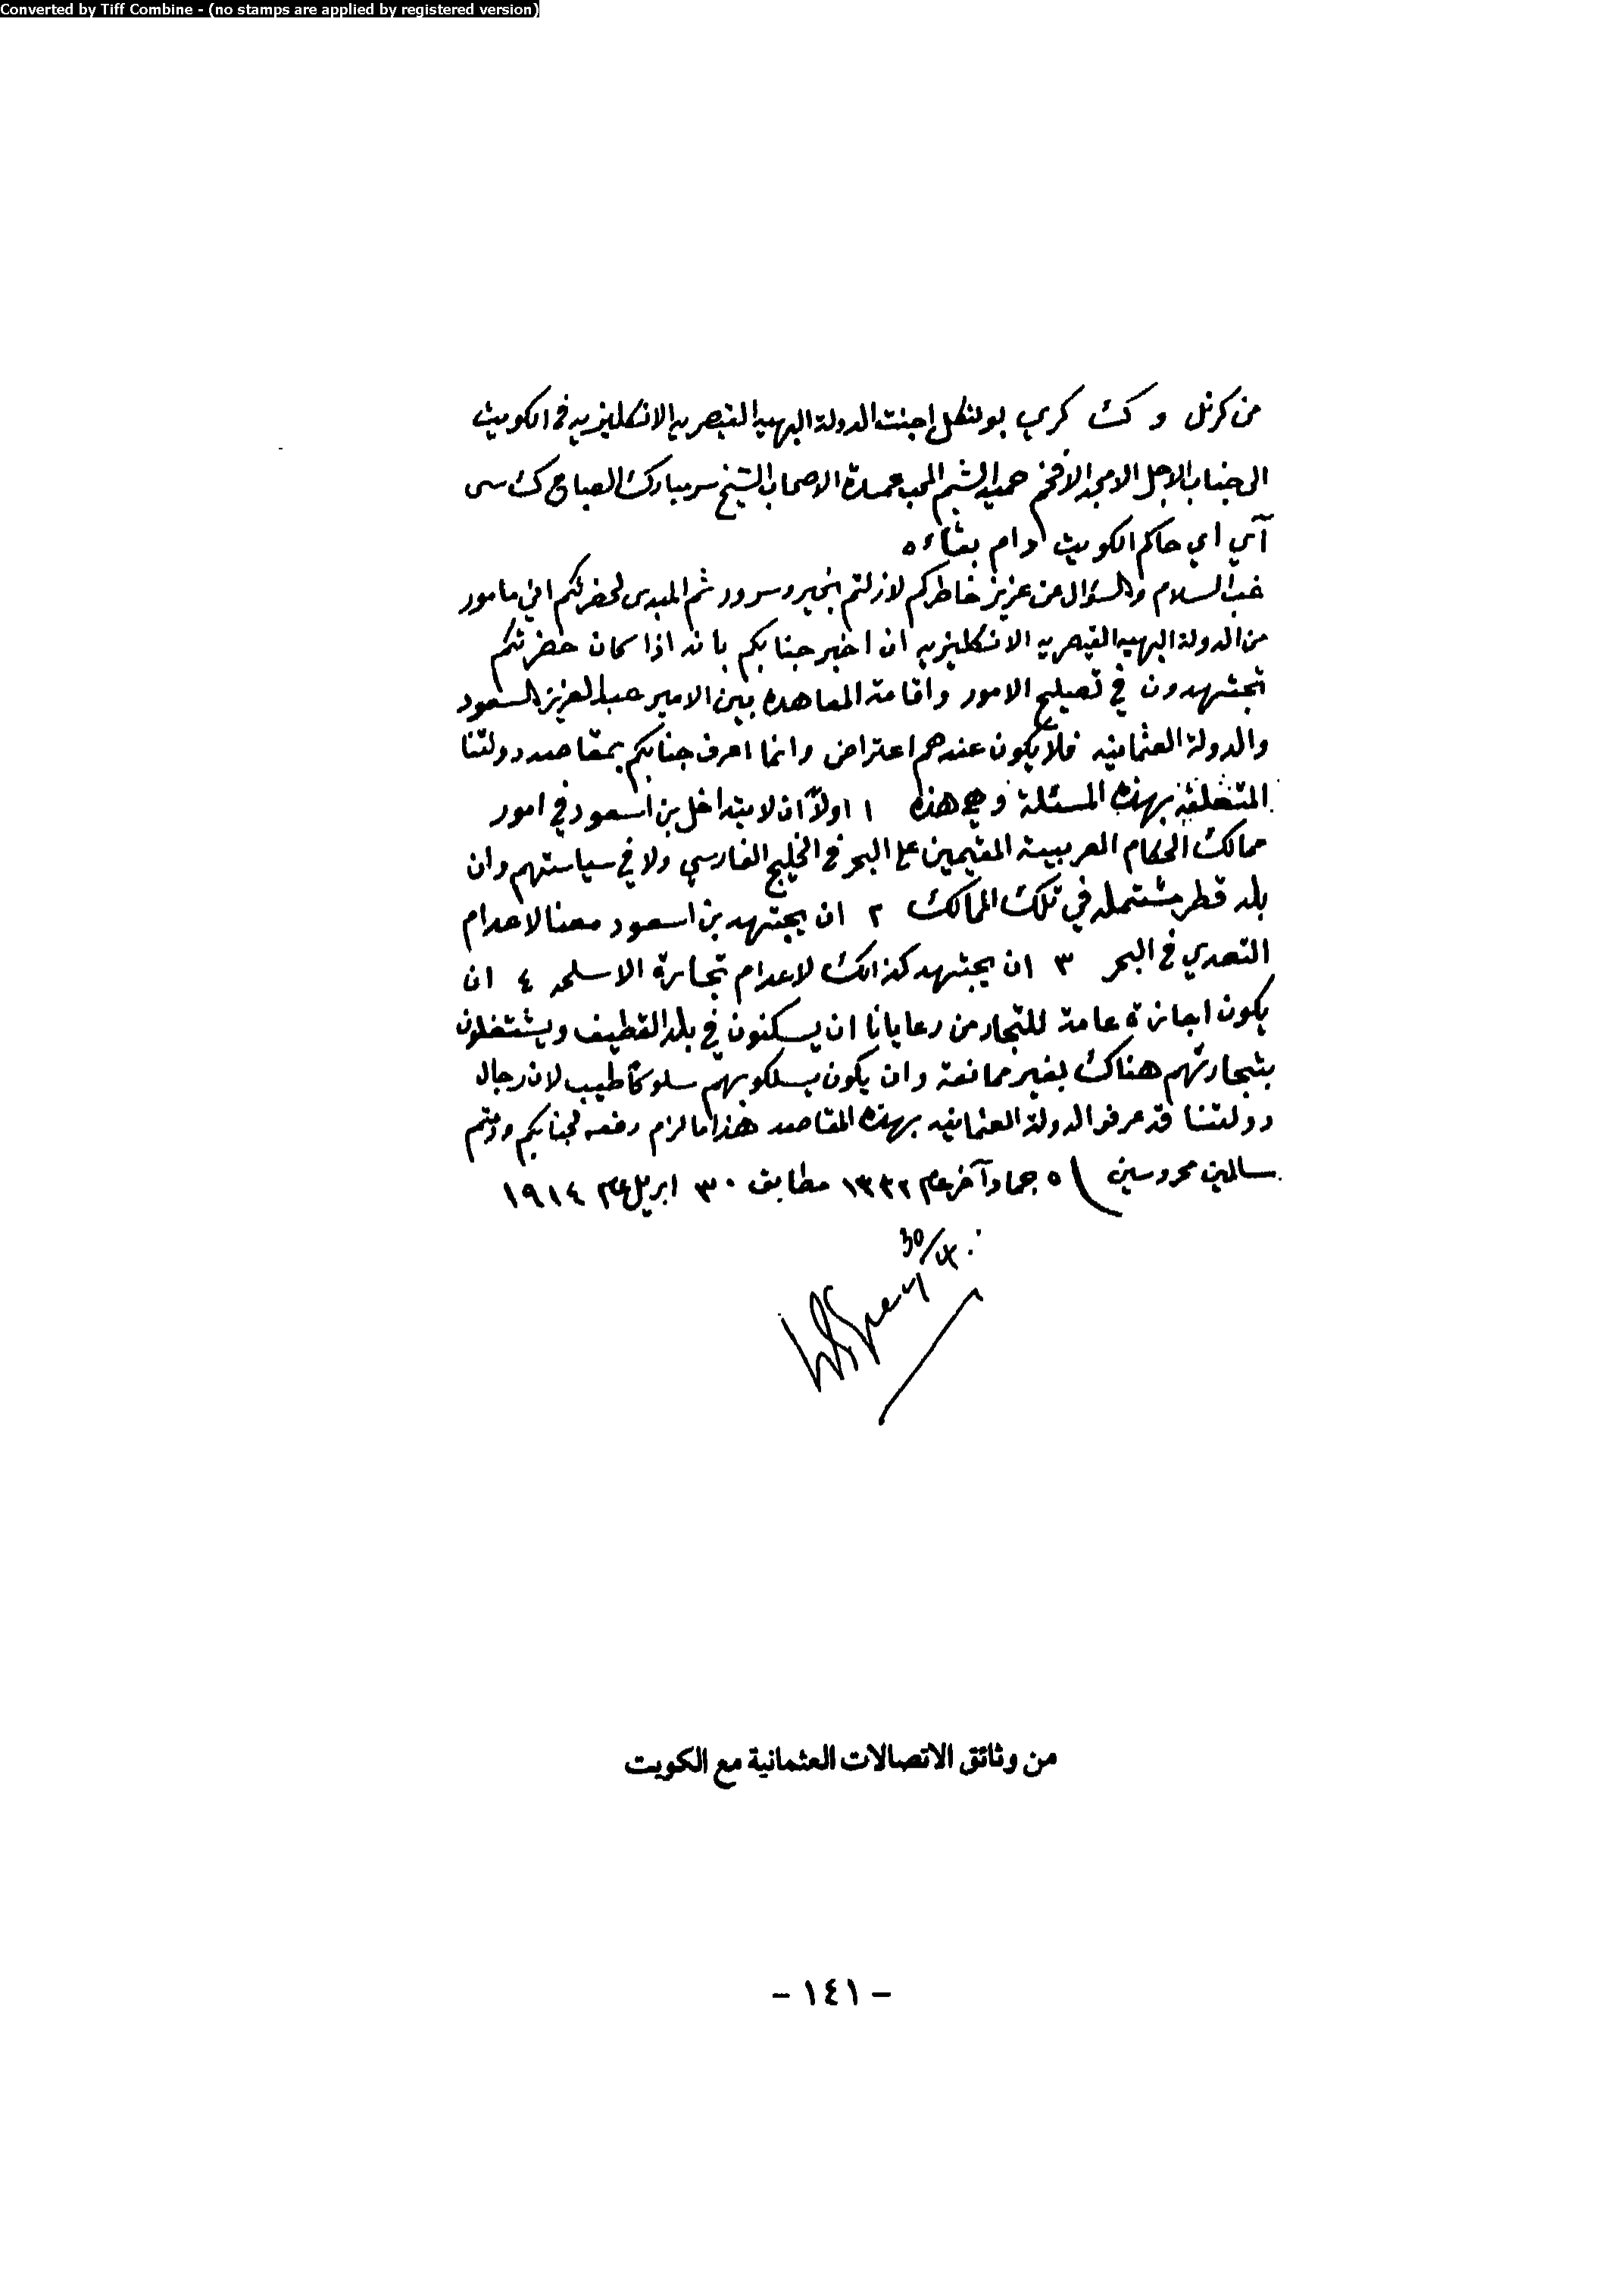 Converted by Tiff Combine - (no stamps are applied by registered version)
من كرنل و ك كري بولتكل اجنت الدولة البهيه القيصريه الانكليزيه في الكويت
الى جناب الاجل الامجد الافخم حميد الشيم المحب عمدة الاصحاب الشيخ سر مبارك الصباح ك سى
آي اي حاكم الكويت دام بقاءه
غب السلام والسؤال عن عزيز خاطركم لازلتم بخير وسرور ثم المبدى لحضرتكم اني مامور
من الدولة البهيه القيصريه الانكليزيه ان اخبر جنابكم بانه اذا كان حضرتكم
تجتهدون في تصليح الامور واقامة المعاهده بين الامير عبدالعزيز السعود
والدولة العثمانيه فلا يكون عندهم اعتراض وانما اعرف جنابكم بمقاصد دولتنا
المتعلقة بهذه المسئلة وهي هذه ١ اولاً ان لا يتداخل بن اسعود في امور
ممالك الحكام العربية المقيمين على البحر في الخليج الفارسي ولا في سياستهم وان
بلد قطر مشتمله في تلك الممالك ٢ ان يجتهد بن اسعود معنا لاعدام
التعدي في البحر ٣ ان يجتهد كذالك لاعدام تجارة الاسلحه ٤ ان
يكون اجازة عامة للتجار من رعايانا ان يسكنون في بلد القطيف ويشتغلون
بتجارتهم هناك بغير ممانعة وان يكون يسلكو بهم سلوكاً طيب لان رجال
دولتنا قد عرفو الدولة العثمانيه بهذه المقاصد هذا ما لزم رفعه لجنابكم ودمتم
سالمين محروسين ٥ جماد آخر عام ١٣٣٢ مطابق ٣٠ ابريل عام ١٩١٤
30/4
من وثائق الاتصالات العثمانية مع الكويت
- ١٤١ -